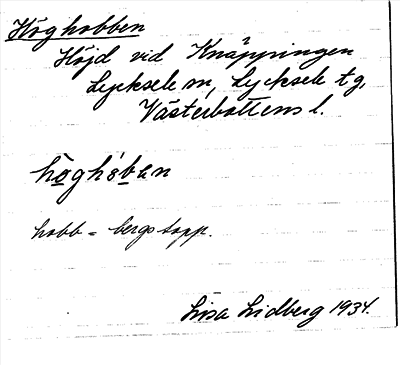 Höghobben
Höjd vid Knäppingen
Lycksele m, Lycksele tg,
Västerbottens l.
hobb = bergstopp.
Lisa Lidberg 1934.